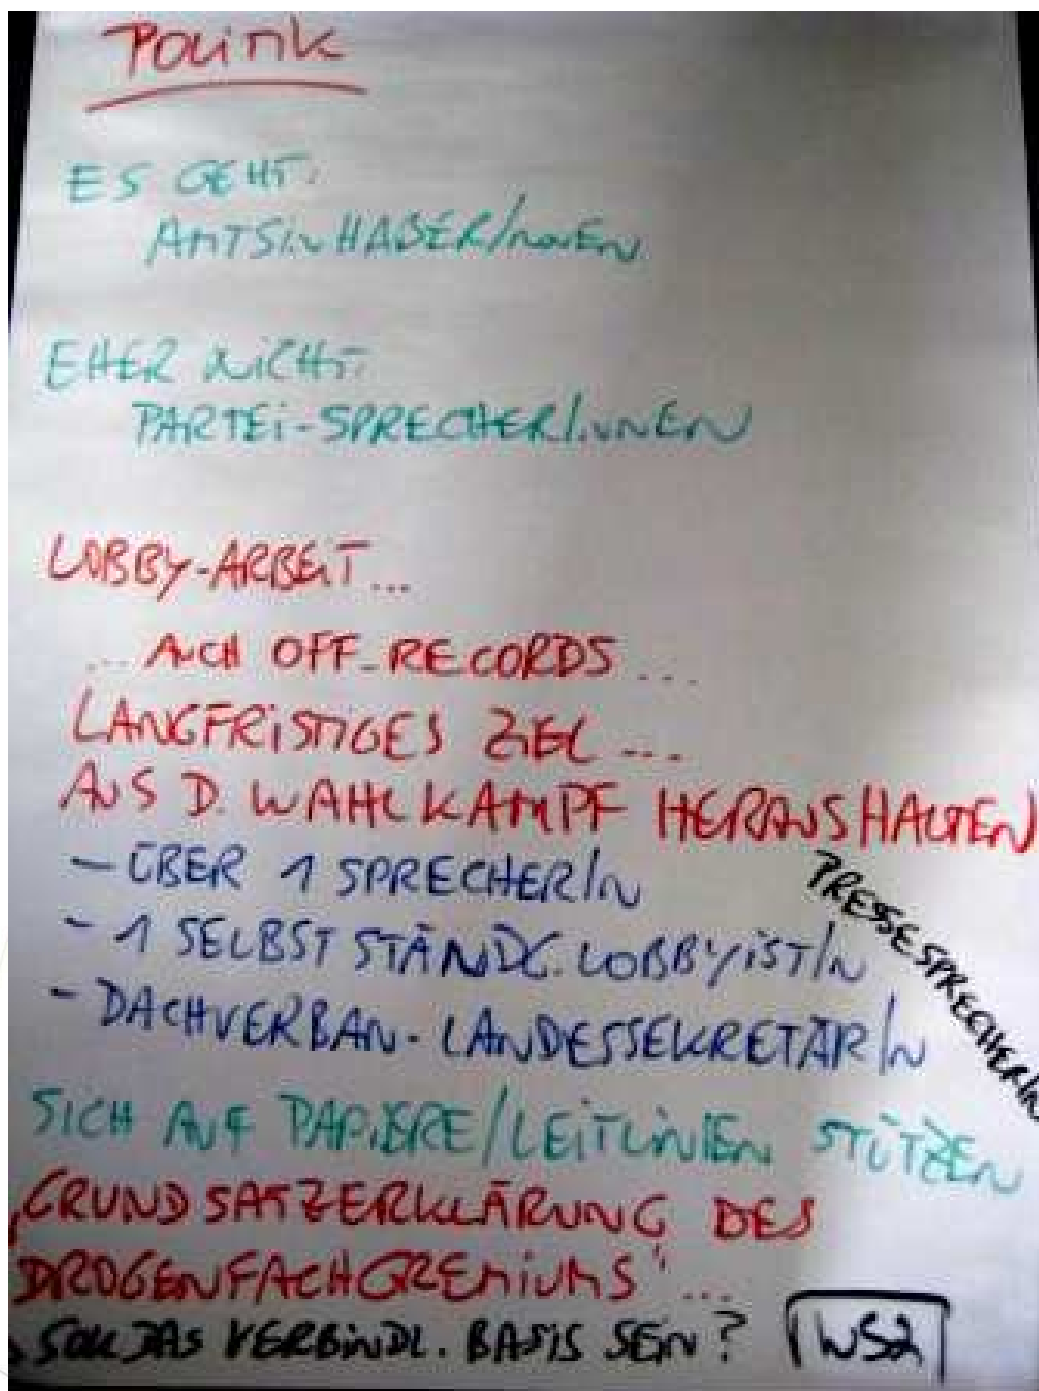 Politik
ES GEHT:
AMTSINHABER/INNEN
EHER NICHT:
PARTEI-SPRECHER/INNEN
LOBBY-ARBEIT...
... AUCH OFF-RECORDS ...
LANGFRISTIGES ZIEL ...
AUS D. WAHLKAMPF HERAUSHALTEN
- ÜBER 1 SPRECHER/IN
PRESSESPRECHER/IN
- 1 SELBST STÄNDG. LOBBYIST/IN
- DACHVERBAN- LANDESSEKRETÄR/IN
SICH AUF PAPIERE/LEITLINIEN STÜTZEN
„GRUNDSATZERKLÄRUNG DES
DROGENFACHGREMIUMS" ...
SOLL DAS VERBINDL. BASIS SEIN?
WS2